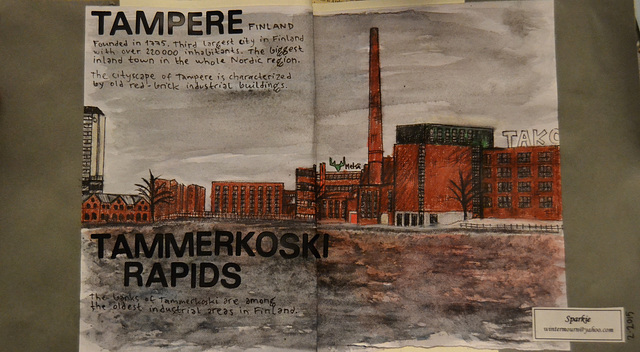 TAMPERE FINLAND
Founded in 1775. Third largest city in Finland
with over 220 000 inhabitants. The biggest
inland town in the whole Nordic region.
The cityscape of Tampere is characterized
by old red-brick industrial buildings.
Metsä
TAKO
TAMMERKOSKI
RAPIDS
The banks of Tammerkoski are among
the oldest industrial areas in Finland.
Sparkie
wintermourn@yahoo.com
2-2015